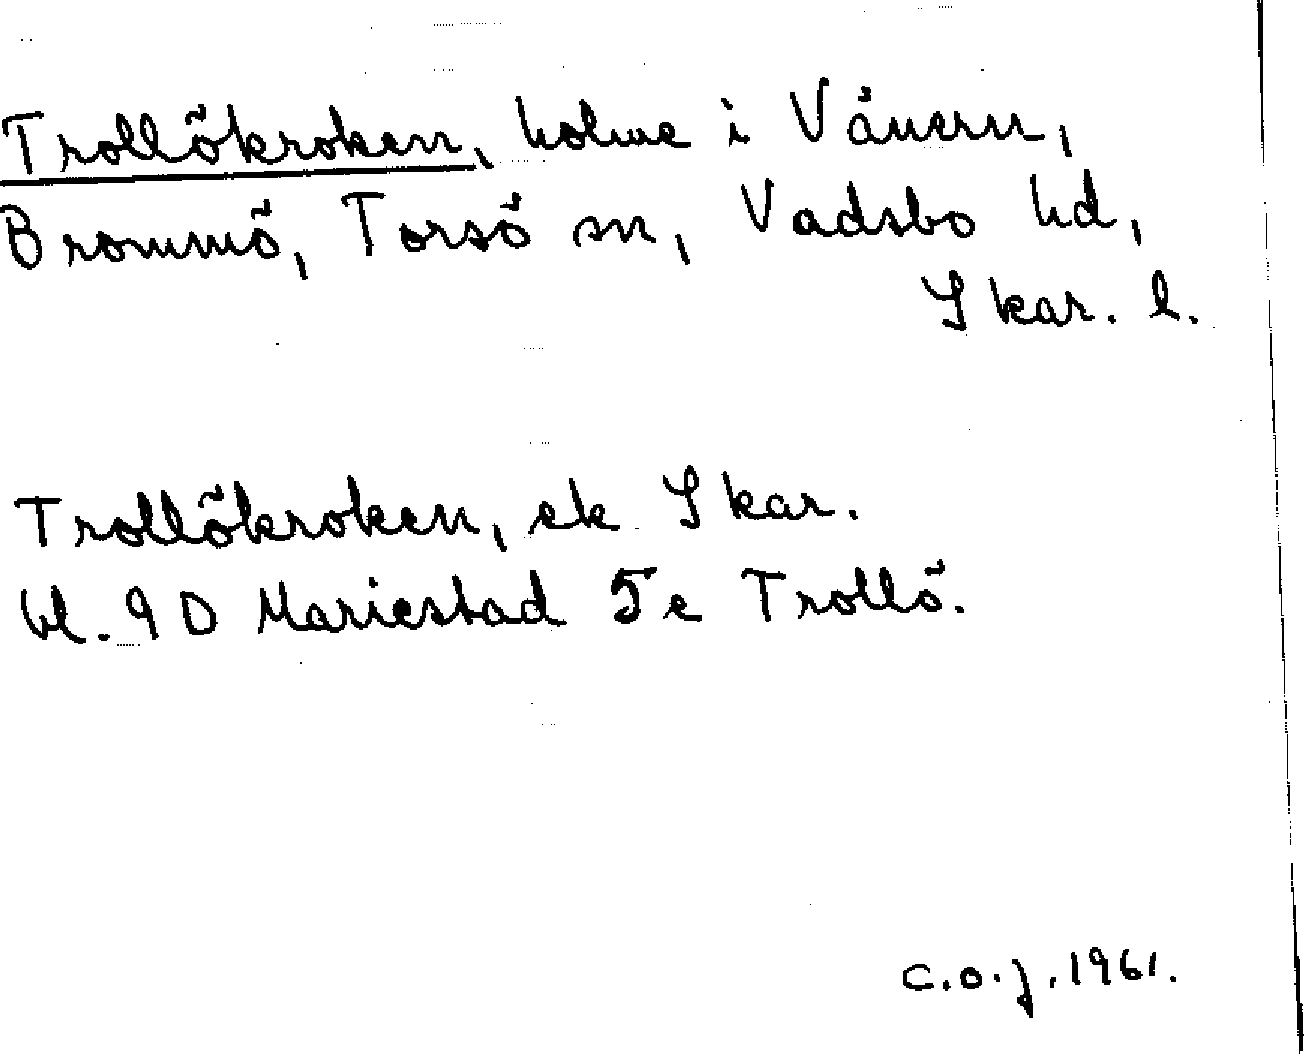 Trollökroken, holme i Vänern,
Brommö, Torsö sn, Vadsbo hd,
Skar. l.
Trollökroken, ek Skar.
bl. 9D Mariestad 5c Trollö.
C.O.J. 1961.